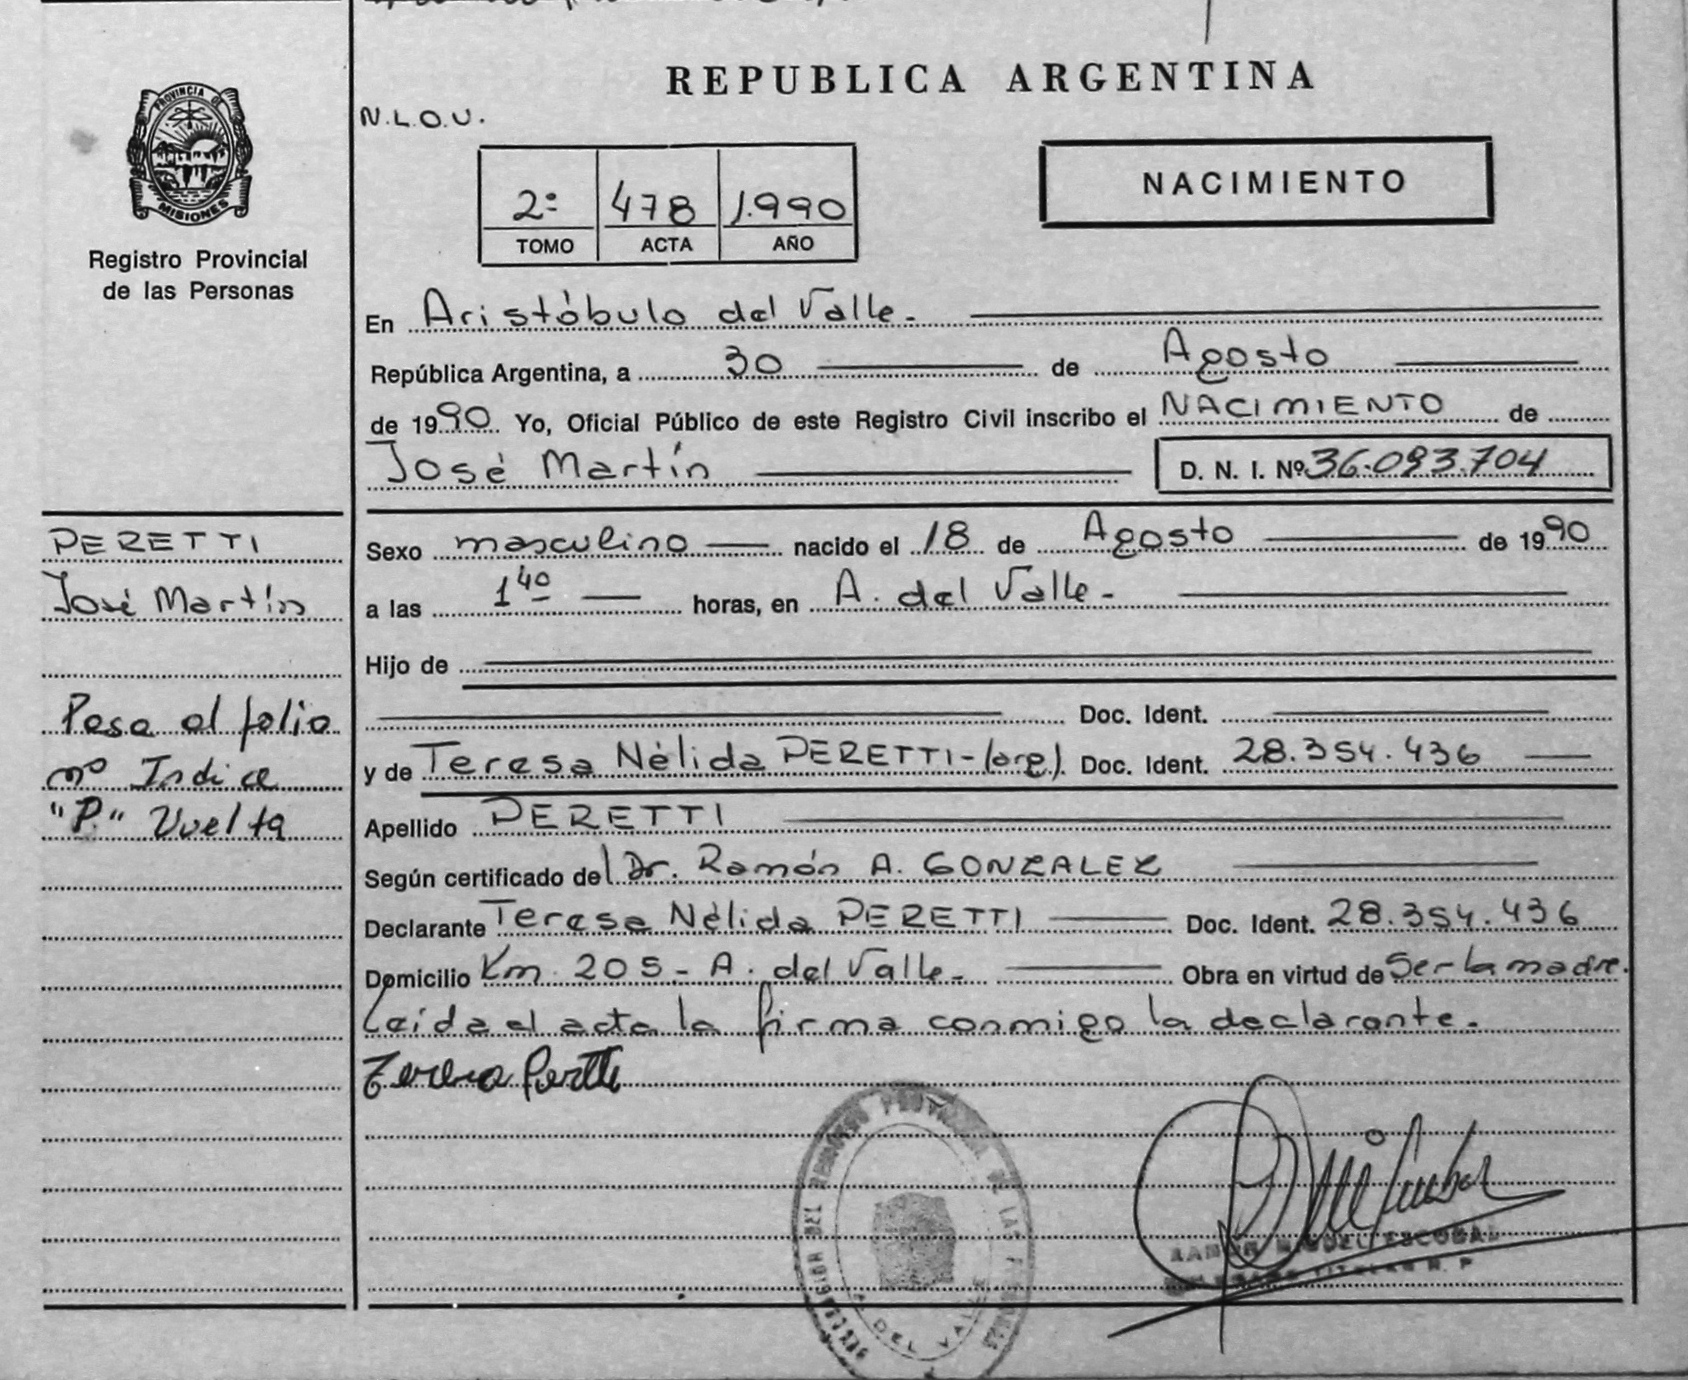 REPUBLICA ARGENTINA
PROVINCIA DE
MISIONES
Registro Provincial
de las Personas
N.L.O.U.
2º 478 1.990
TOMO ACTA AÑO
NACIMIENTO
En Aristóbulo del Valle.-
República Argentina, a 30 de Agosto
de 1990. Yo, Oficial Público de este Registro Civil inscribo el NACIMIENTO de
José Martín D. N. I. Nº 36.093.704
PERETTI
José Martín
Pasa al folio
nº Indice
"P." Vuelta
Sexo masculino nacido el 18 de Agosto de 1990
a las 1 40 horas, en A. del Valle.-
Hijo de
Doc. Ident.
y de Teresa Nélida PERETTI-(arg.). Doc. Ident. 28.354.436
Apellido PERETTI
Según certificado del Dr. Ramón A. GONZALEZ
Declarante Teresa Nélida PERETTI Doc. Ident. 28.354.436
Domicilio Km. 205 - A. del Valle.- Obra en virtud de Ser la madre.
Leída el acta la firma conmigo la declarante.-
Teresa Peretti
DEL VALLE
RAMON MIGUEL ESCOBAL
DELEGADO TITULAR R. P.